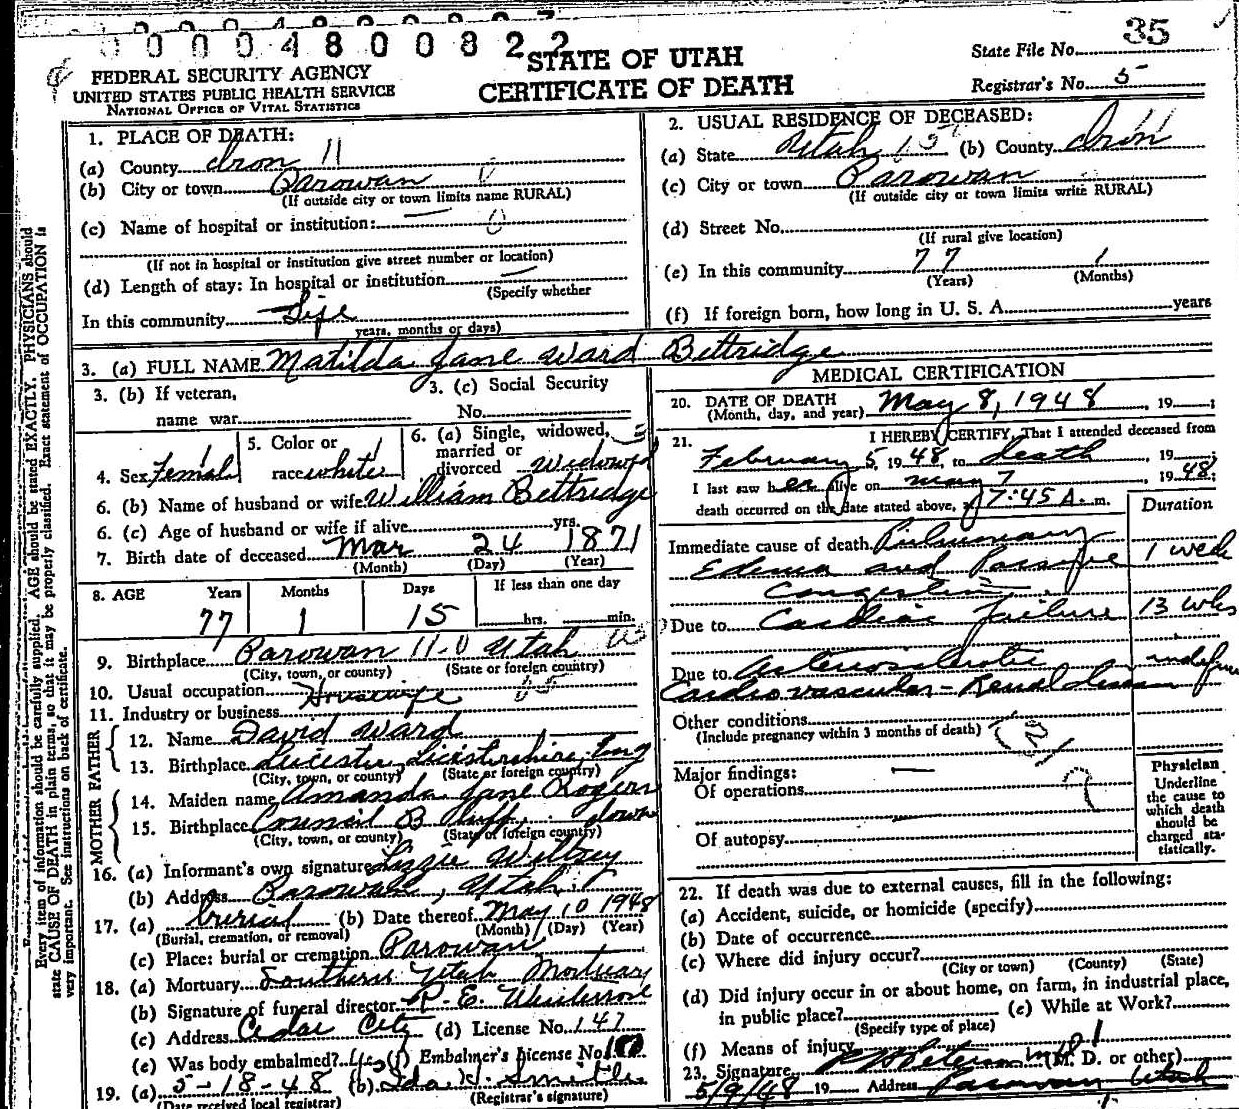 000048008 22
STATE OF UTAH
CERTIFICATE OF DEATH
State File No. 35
Registrar's No. 5
FEDERAL SECURITY AGENCY
UNITED STATES PUBLIC HEALTH SERVICE
NATIONAL OFFICE OF VITAL STATISTICS
Every item of information should be carefully supplied. AGE should be stated EXACTLY. PHYSICIANS should
state CAUSE OF DEATH in plain terms, so that it may be properly classified. Exact statement of OCCUPATION is
very important. See instructions on back of certificate.
1. PLACE OF DEATH:
(a) County Iron 11
(b) City or town Parowan 0
(If outside city or town limits name RURAL)
(c) Name of hospital or institution: — 0
(If not in hospital or institution give street number or location)
(d) Length of stay: In hospital or institution —
(Specify whether
In this community Life
years, months or days)
2. USUAL RESIDENCE OF DECEASED:
(a) State Utah (b) County Iron
(c) City or town Parowan
(If outside city or town limits write RURAL)
(d) Street No.
(If rural give location)
(e) In this community 77 1
(Years) (Months)
(f) If foreign born, how long in U. S. A. years
3. (a) FULL NAME Matilda Jane Ward Bettridge
3. (b) If veteran,
name war
3. (c) Social Security
No.
4. Sex Female
5. Color or
race white
6. (a) Single, widowed,
married or
divorced Widowed
6. (b) Name of husband or wife William Bettridge
6. (c) Age of husband or wife if alive yrs.
7. Birth date of deceased Mar 24 1871
(Month) (Day) (Year)
8. AGE Years Months Days If less than one day
77 1 15 hrs. min.
9. Birthplace Parowan 11-0 Utah
(City, town, or county) (State or foreign country)
10. Usual occupation Housewife
11. Industry or business
FATHER
12. Name David Ward
13. Birthplace Leicester, Leicestershire, Eng
(City, town, or county) (State or foreign country)
MOTHER
14. Maiden name Amanda Jane Rogers
15. Birthplace Council Bluff, Iowa
(City, town, or county) (State or foreign country)
16. (a) Informant's own signature Lizzie Wiltsey
(b) Address Parowan, Utah
17. (a) burial (b) Date thereof May 10 1948
(Burial, cremation, or removal) (Month) (Day) (Year)
(c) Place: burial or cremation Parowan
18. (a) Mortuary Southern Utah Mortuary
(b) Signature of funeral director R. E.
(c) Address Cedar City (d) License No. 147
(e) Was body embalmed? Yes (f) Embalmer's License No.
19. (a) 5-18-48 (b) Ida H. Smith
(Date received local registrar) (Registrar's signature)
MEDICAL CERTIFICATION
20. DATE OF DEATH May 8, 1948, 19 ;
(Month, day, and year)
21. I HEREBY CERTIFY, That I attended deceased from
February 5, 1948, to death, 19 ;
I last saw her alive on may 7 1948;
death occurred on the date stated above, at 7:45 A. m.
Duration
Immediate cause of death Pulmonary
Edema and Passive 1 week
Congestion
Due to Cardiac Failure 13 wks
Due to Arteriosclerotic
Cardiovascular-Renal disease
Other conditions
(Include pregnancy within 3 months of death)
Major findings:
Of operations —
Of autopsy —
Physician
Underline
the cause to
which death
should be
charged sta-
tistically.
22. If death was due to external causes, fill in the following:
(a) Accident, suicide, or homicide (specify)
(b) Date of occurrence
(c) Where did injury occur?
(City or town) (County) (State)
(d) Did injury occur in or about home, on farm, in industrial place,
in public place? (e) While at Work?
(Specify type of place)
(f) Means of injury
23. Signature (M. D. or other)
5/9/48 19 Address Parowan Utah